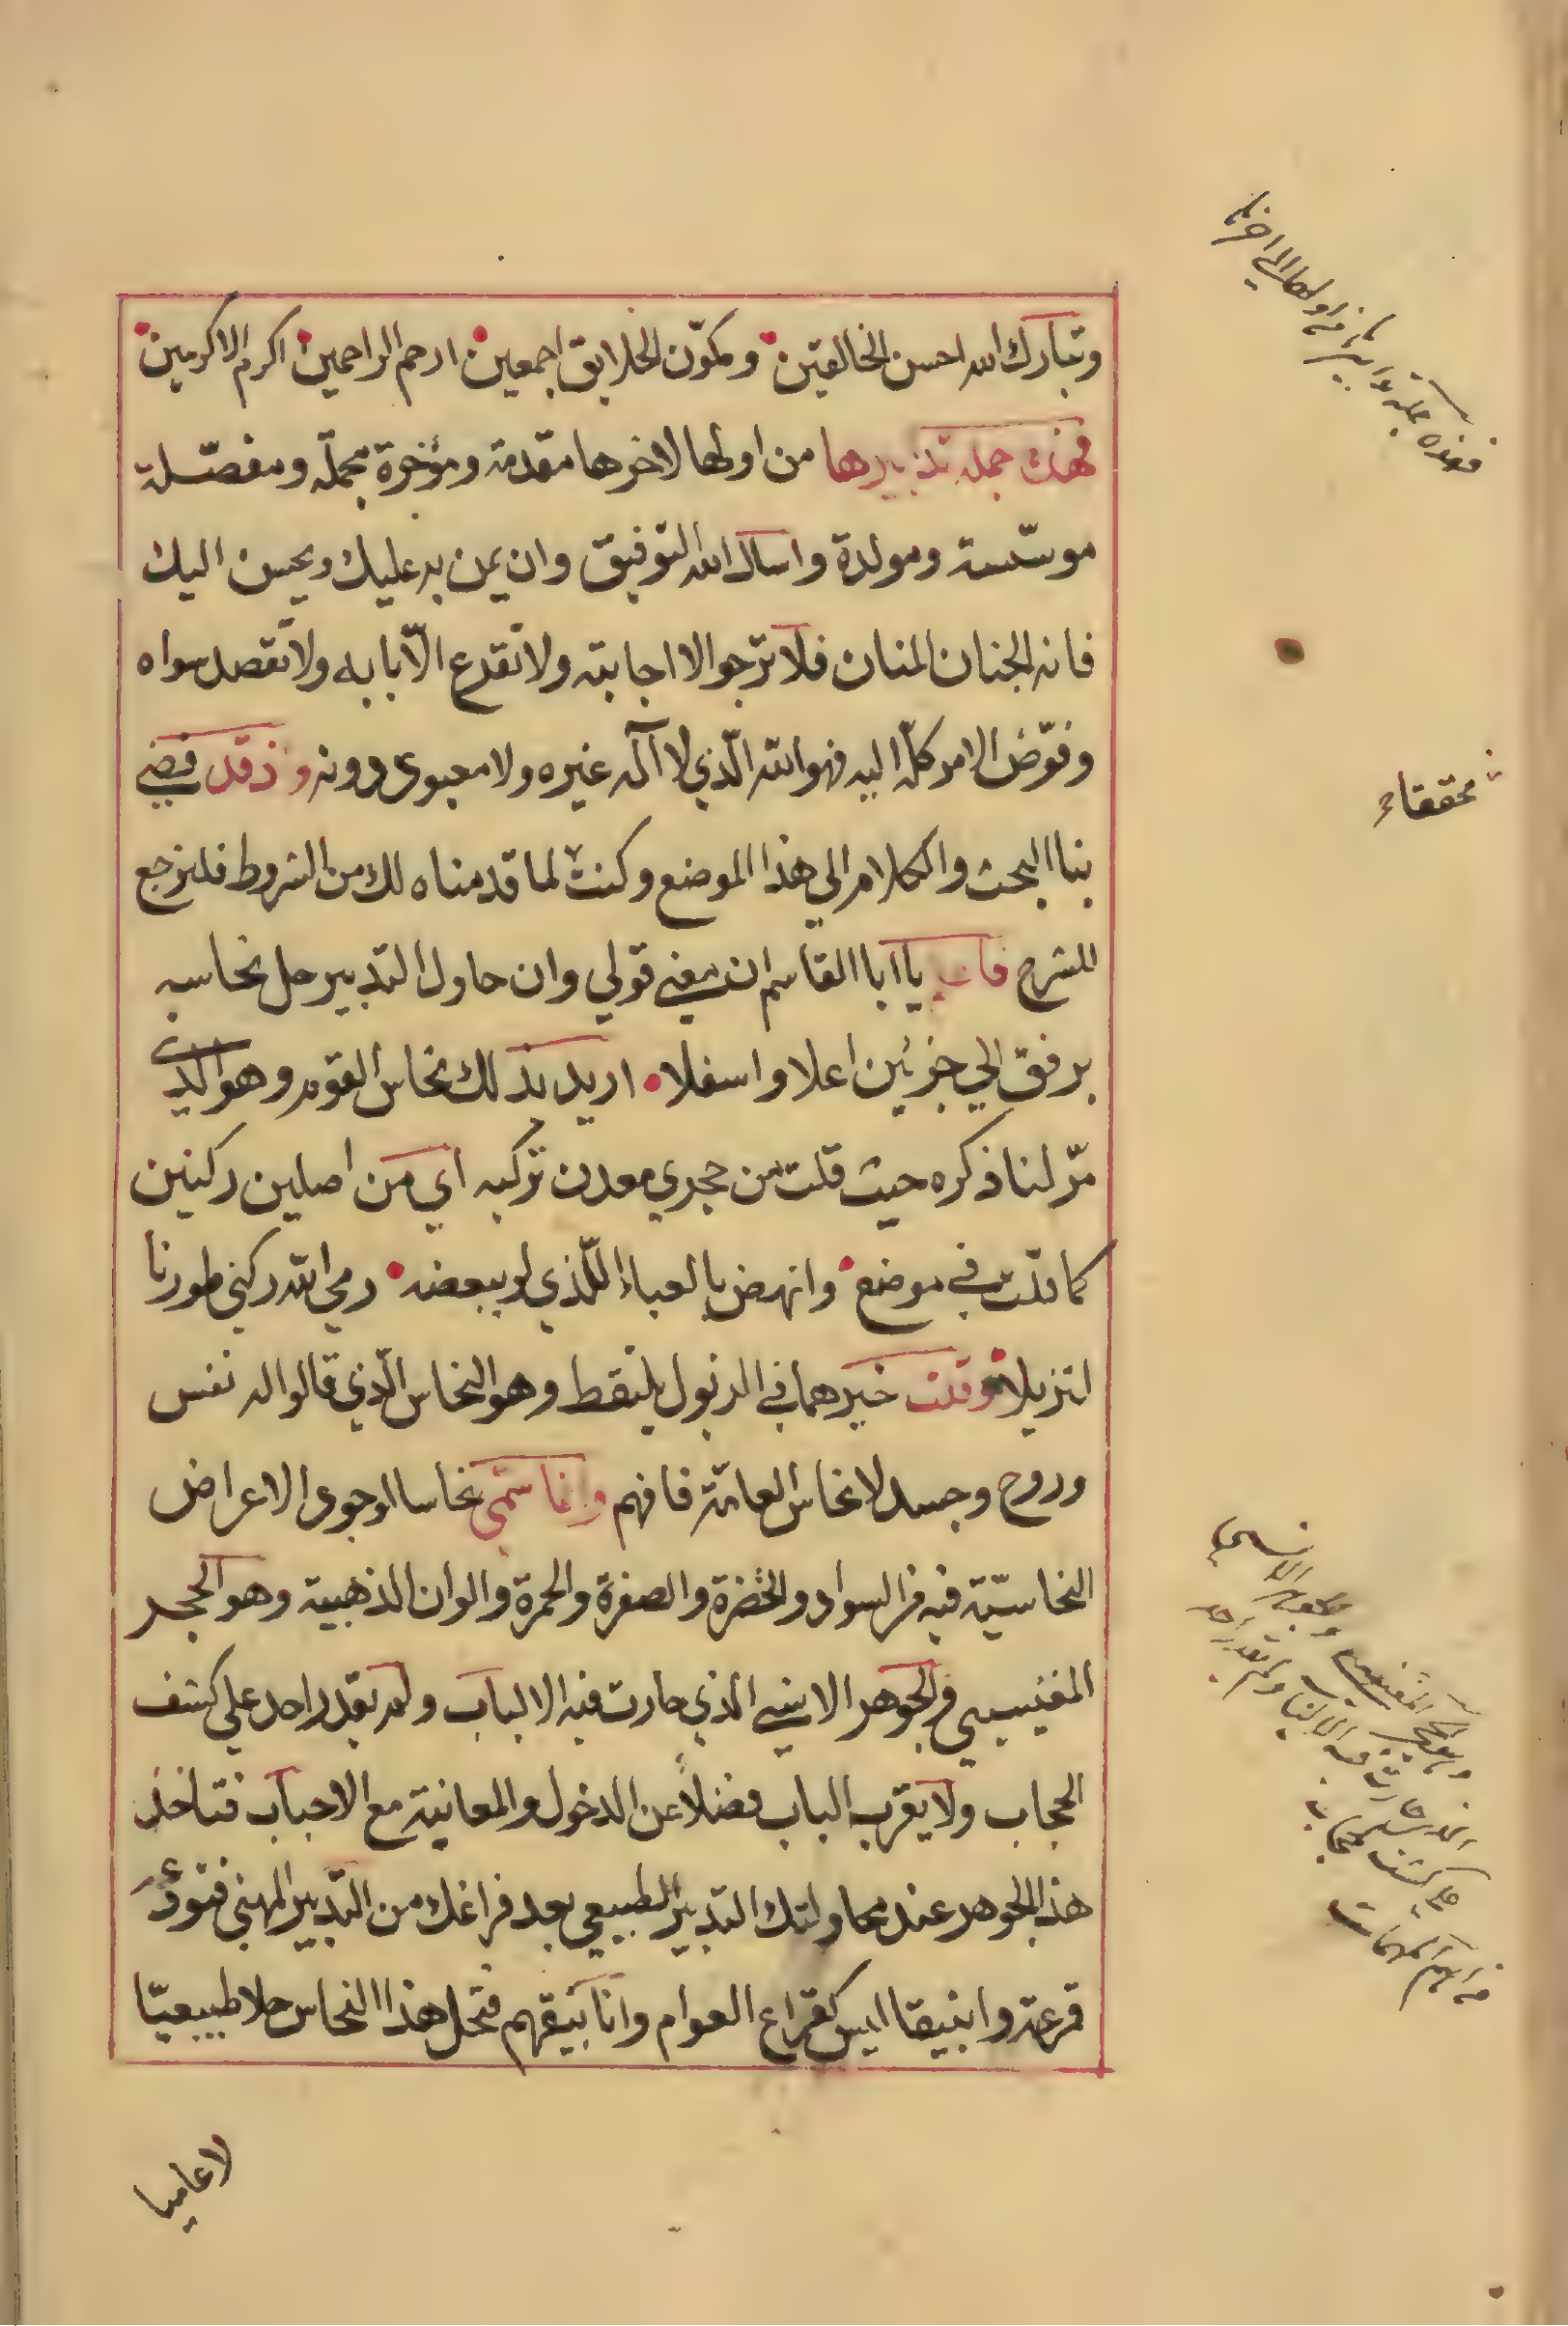 وتبارك الله احسن الخالقين ومكوّن الخلايق اجمعين ارحم الراحمين اكرم الاكرمين
فهذه جملة تدبيرها من اولها لاخرها مقدمة ومؤخرة مجملة ومفصّلة
موسّسة ومولدة واسال الله التوفيق وان يمن به عليك ويحسن اليك
فانه الحنان المنان فلا ترجو الا اجابته ولا تقرع الّا بابه ولا تقصد سواه
وفوّض الامر كلّه اليه فهو الله الّذي لا اله غيره ولا معبود دونه واذ قد قضي
بنا البحث والكلام الي هذا الموضع وكنت لما قدمناه لك من الشروط فلنرجع
للشرح فاعلم يا ابا القاسم ان معني قولي وان حاول التدبير حل نحاسه
برفق الي جزئين اعلا واسفلا اريد بذلك نحاس القوم وهو الذي
مرّ لنا ذكره حيث قلت من حجري معدن تركبه اي من اصلين ركنين
كما قلت في موضع وانهض بالعباء اللّذي لو ببعضه رمي الله ركني طورنا
لتزيلا وقلت خيرهما في الزبول يلتقط وهو النحاس الّذي قالوا له نفس
وروح وجسد لا نحاس العامّة فافهم وانما سمّي نحاسا لوجود الاعراض
النحاسيّة فيه من السواد والخضرة والصفرة والحمرة والوان الذهبية وهو الحجر
المغنيسي والجوهر الانيسي الذي حارت فيه الالباب ولم يقدر احد علي كشف
الحجاب ولا يقرب الباب فضلاً عن الدخول والمعانية مع الاحباب فتاخذ
هذا الجوهر عند محاولتك التدبير الطبيعي بعد فراغك من التدبير المهني فتودع
قرعة وانبيقا ليس كقراع العوام وانابيقهم فتحل هذا النحاس حلا طبيعيّا
لا عاميا
فهذه جملة تدابيرها من اولها الي اخرها
محققاء
والحجر المغنيسي والجوهر الانيسي
الذي حارت فيه الالباب ولم يقدر احد
علي كشف حجابه
من اهم المهمات